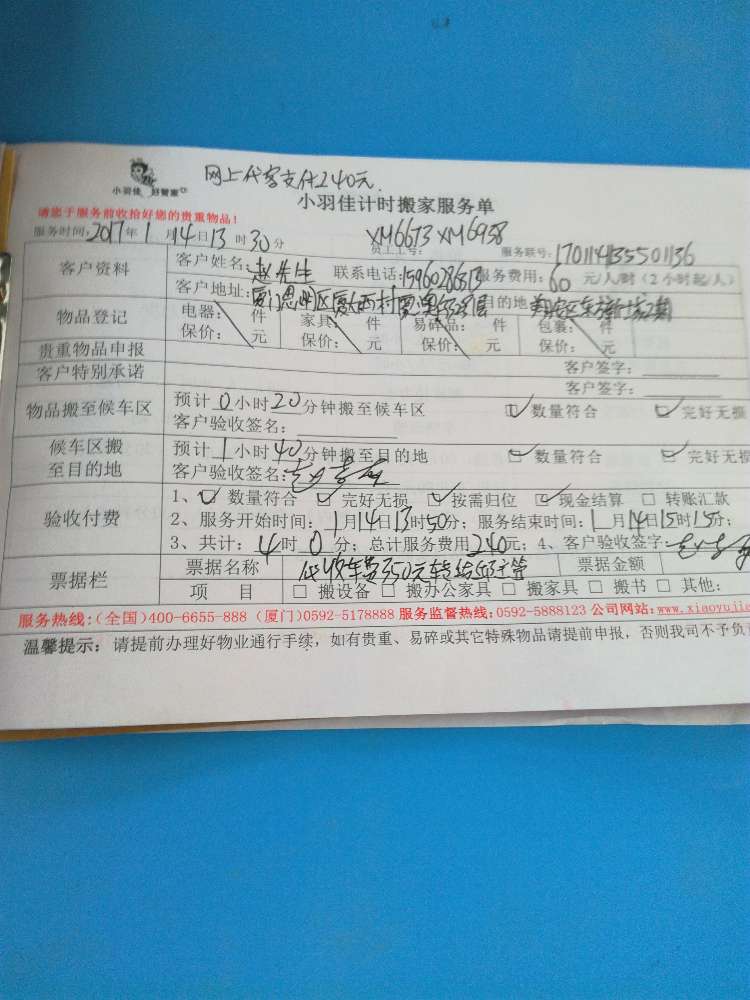 网上代客支付240元.
小羽佳 好管家
小羽佳计时搬家服务单
请您于服务前收拾好您的贵重物品!
XM6673 XM6938
服务时间:2017年1月14日13时30分 员工工号: 服务联号:170114135501136
客户资料 客户姓名:赵先生 联系电话:15960286513 服务费用:60元/人/时(2小时起/人)
客户地址:厦门思明区厦大西村 目的地
物品登记 电器: 件 家具: 件 易碎品: 件 包裹: 件
保价: 元 保价: 元 保价: 元 保价: 元
贵重物品申报
客户签字:
客户特别承诺 客户签字:
物品搬至候车区 预计0小时20分钟搬至候车区 数量符合 完好无损
客户验收签名:
候车区搬至目的地 预计1小时40分钟搬至目的地 数量符合 完好无损
客户验收签名:
验收付费 1、 数量符合 完好无损 按需归位 现金结算 转账汇款
2、服务开始时间:1月14日13时50分; 服务结束时间:1月14日15时15分;
3、共计:4时0分; 总计服务费用240元; 4、客户验收签字:
票据栏 票据名称 票据金额
项 目 搬设备 搬办公家具 搬家具 搬书 其他:
服务热线:(全国)400-6655-888 (厦门)0592-5178888 服务监督热线:0592-5888123 公司网站:www.xiaoyujia
温馨提示:请提前办理好物业通行手续,如有贵重、易碎或其它特殊物品请提前申报,否则我司不予负